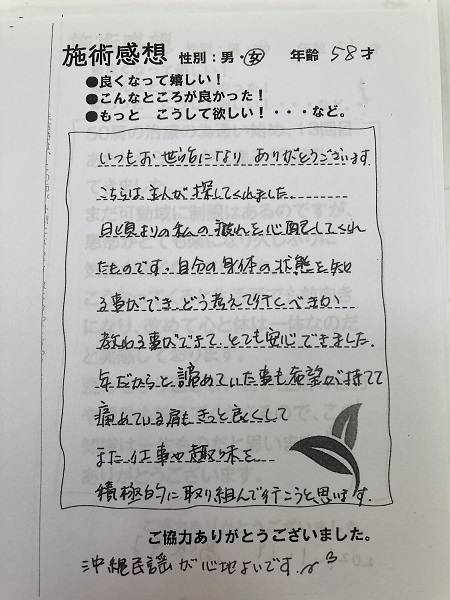 施術感想 性別：男・女 年齢 58才
●良くなって嬉しい！
●こんなところが良かった！
●もっと こうして欲しい！・・・など。
いつもお世話になり ありがとうございます.
こちらは、主人が探してくれました.
日頃よりの私の疲れを心配してくれ
たものです。自分の身体の状態を知
る事ができ、どう考えて行くべきか
教わる事ができて、とても安心できました.
年だからと諦めていた事も希望が持てて
痛めている肩もきっと良くして
また仕事や趣味を
積極的に取り組んで行こうと思います.
ご協力ありがとうございました。
沖縄民謡が心地よいです。